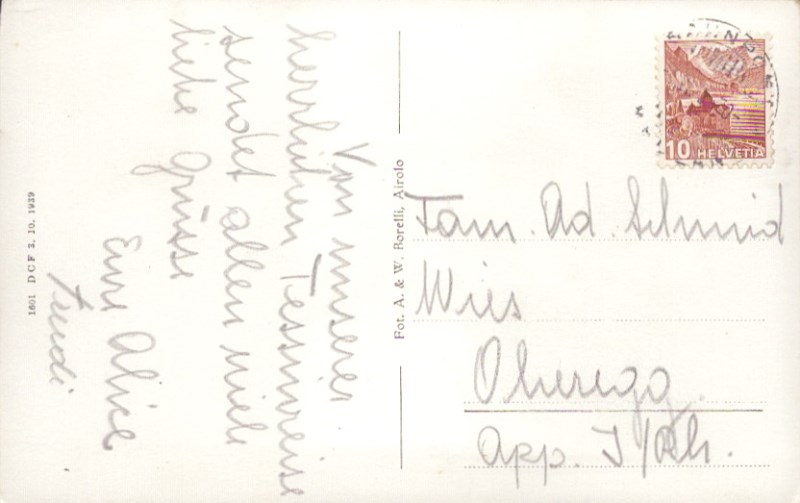 Von unserer
herrlichen Tessinreise
sendet allen viele
liebe Grüsse
Eure Alice
Fam. Ad. Schmid
Wies
Oberegg.
App. I/Rh.
10 HELVETIA
Fot. A. & W. Borelli, Airolo
1601 DCF 3. 10. 1939